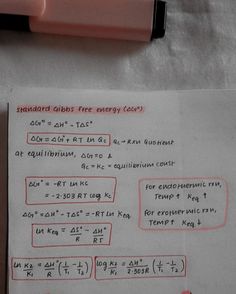 Standard Gibbs free energy (ΔG°):
ΔG° = ΔH° - TΔS°
ΔG = ΔG° + RT ln Qc   Qc → Rxn Quotient
at equilibrium, ΔG = 0 &
Qc = Kc = equilibrium const
ΔG° = -RT ln Kc
= -2.303 RT log Kc
for endothermic rxn,
Temp↑ Keq↑
for exothermic rxn,
Temp↑ Keq↓
ΔG° = ΔH° - TΔS° = -RT ln Keq
ln Keq = ΔS°/R - ΔH°/RT
ln K2/K1 = ΔH°/R (1/T1 - 1/T2)   log K2/K1 = ΔH°/2.303R (1/T1 - 1/T2)